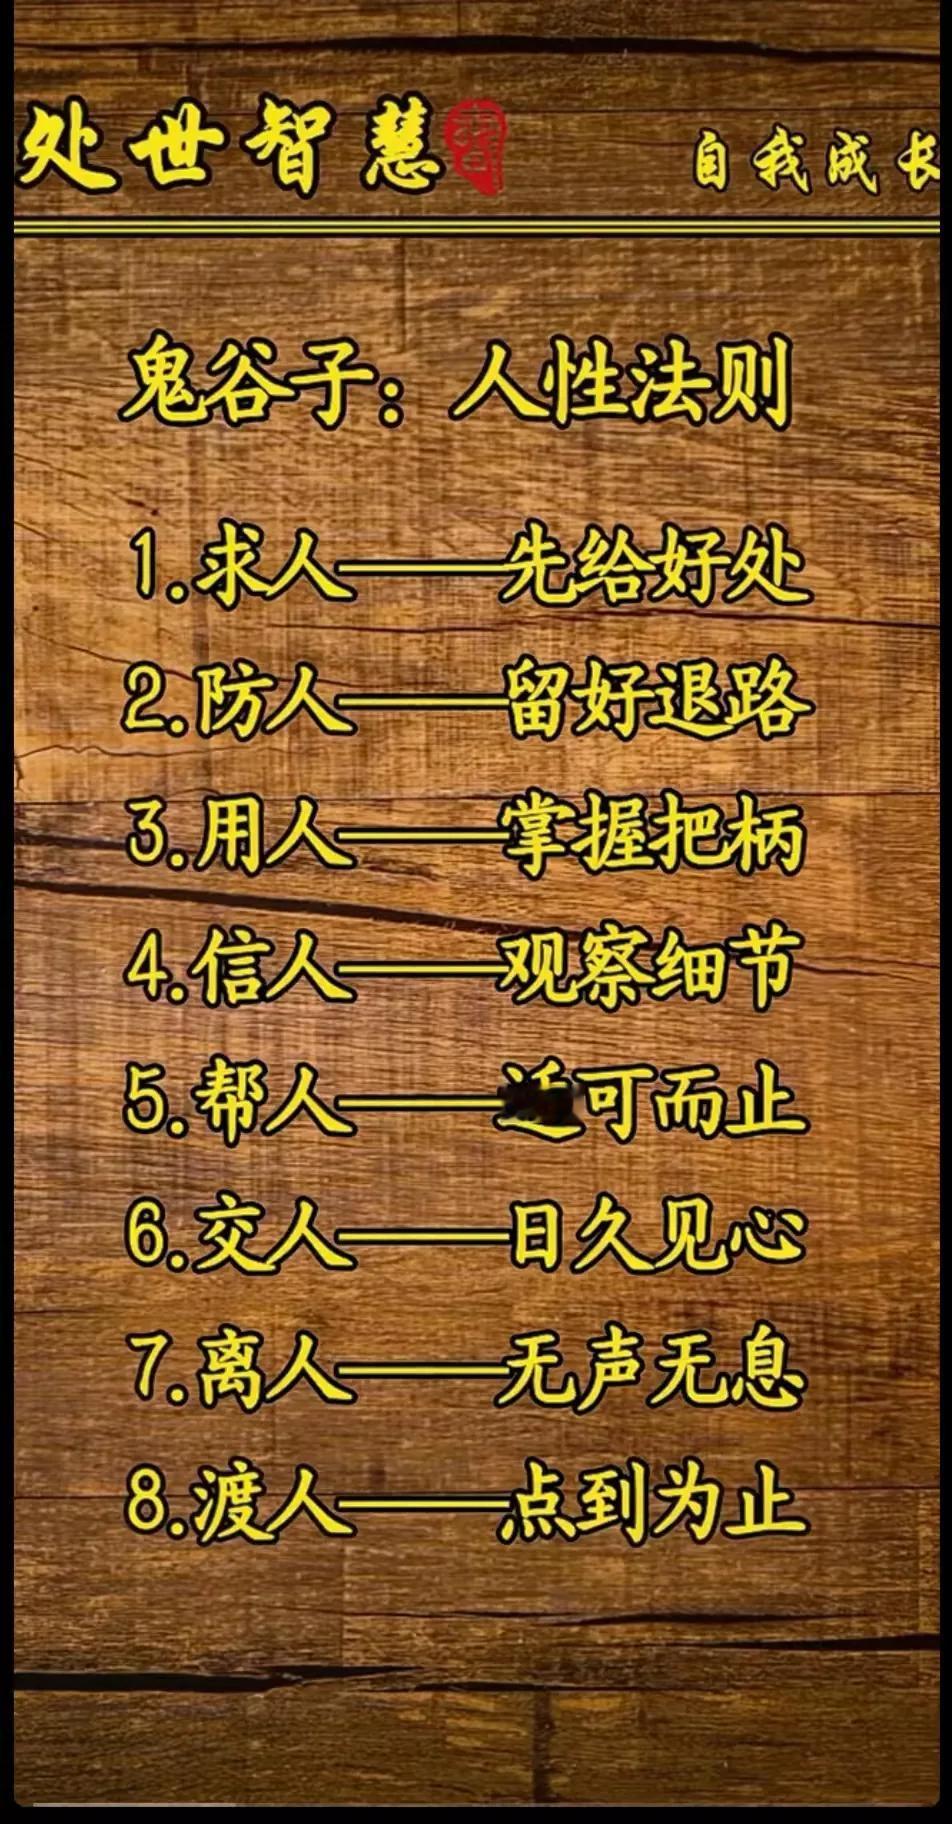 处世智慧
自我成长
鬼谷子：人性法则
1.求人——先给好处
2.防人——留好退路
3.用人——掌握把柄
4.信人——观察细节
5.帮人——可而止
6.交人——日久见心
7.离人——无声无息
8.渡人——点到为止